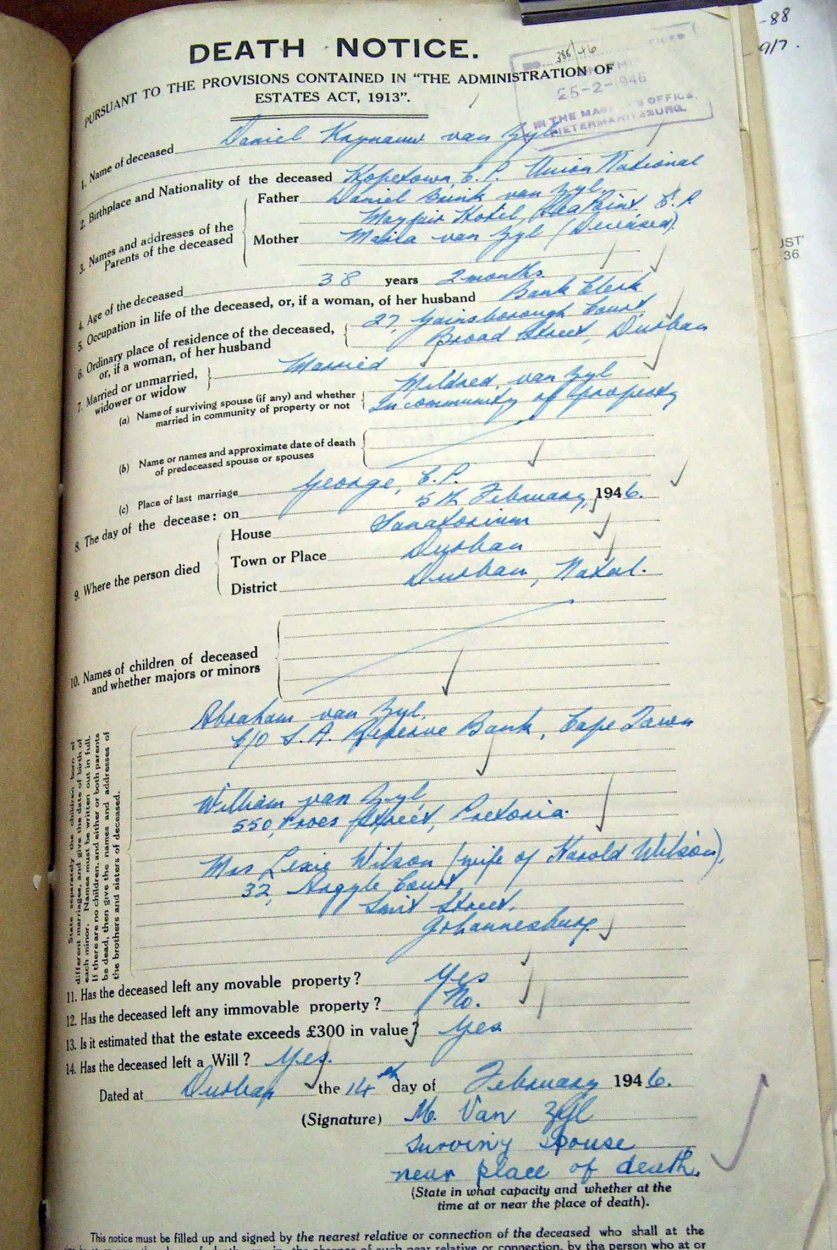 -88
9/7.
DEATH NOTICE.
PURSUANT TO THE PROVISIONS CONTAINED IN "THE ADMINISTRATION OF
ESTATES ACT, 1913".
25-2-1946
IN THE MASTER'S OFFICE,
PIETERMARITZBURG.
1. Name of deceased Daniel van Zyl
2. Birthplace and Nationality of the deceased Hopetown, C.P. Union National
3. Names and addresses of the Parents of the deceased
Father Daniel Brink van Zyl,
Mayfair Hotel, Sea Point, C.P.
Mother Maria van Zyl (Deceased).
4. Age of the deceased 38 years 2 months
5. Occupation in life of the deceased, or, if a woman, of her husband Bank Clerk
6. Ordinary place of residence of the deceased, 27, Gainsborough Court,
or, if a woman, of her husband Broad Street, Durban
7. Married or unmarried, widower or widow Married
(a) Name of surviving spouse (if any) and whether Mildred van Zyl
married in community of property or not In community of property
(b) Name or names and approximate date of death
of predeceased spouse or spouses
(c) Place of last marriage George, C.P.
8. The day of the decease: on 5th February, 1946.
9. Where the person died
House Sanatorium
Town or Place Durban
District Durban, Natal.
10. Names of children of deceased
and whether majors or minors
State separately the children born of
different marriages, and give the date of birth of
each minor. Names must be written out in full.
If there are no children, and either or both parents
be dead, then give the names and addresses of
the brothers and sisters of deceased.
Abraham van Zyl,
c/o S.A. Reserve Bank, Cape Town
William van Zyl,
550, Proes Street, Pretoria.
Mrs Lexie Wilson (wife of Harold Wilson),
32, Argyle Court,
Smit Street,
Johannesburg
11. Has the deceased left any movable property? Yes
12. Has the deceased left any immovable property? No.
13. Is it estimated that the estate exceeds £300 in value? Yes
14. Has the deceased left a Will? Yes.
Dated at Durban the 14th day of February 1946.
(Signature) M. Van Zyl
Surviving Spouse
near place of death.
(State in what capacity and whether at the
time at or near the place of death).
This notice must be filled up and signed by the nearest relative or connection of the deceased who shall at the